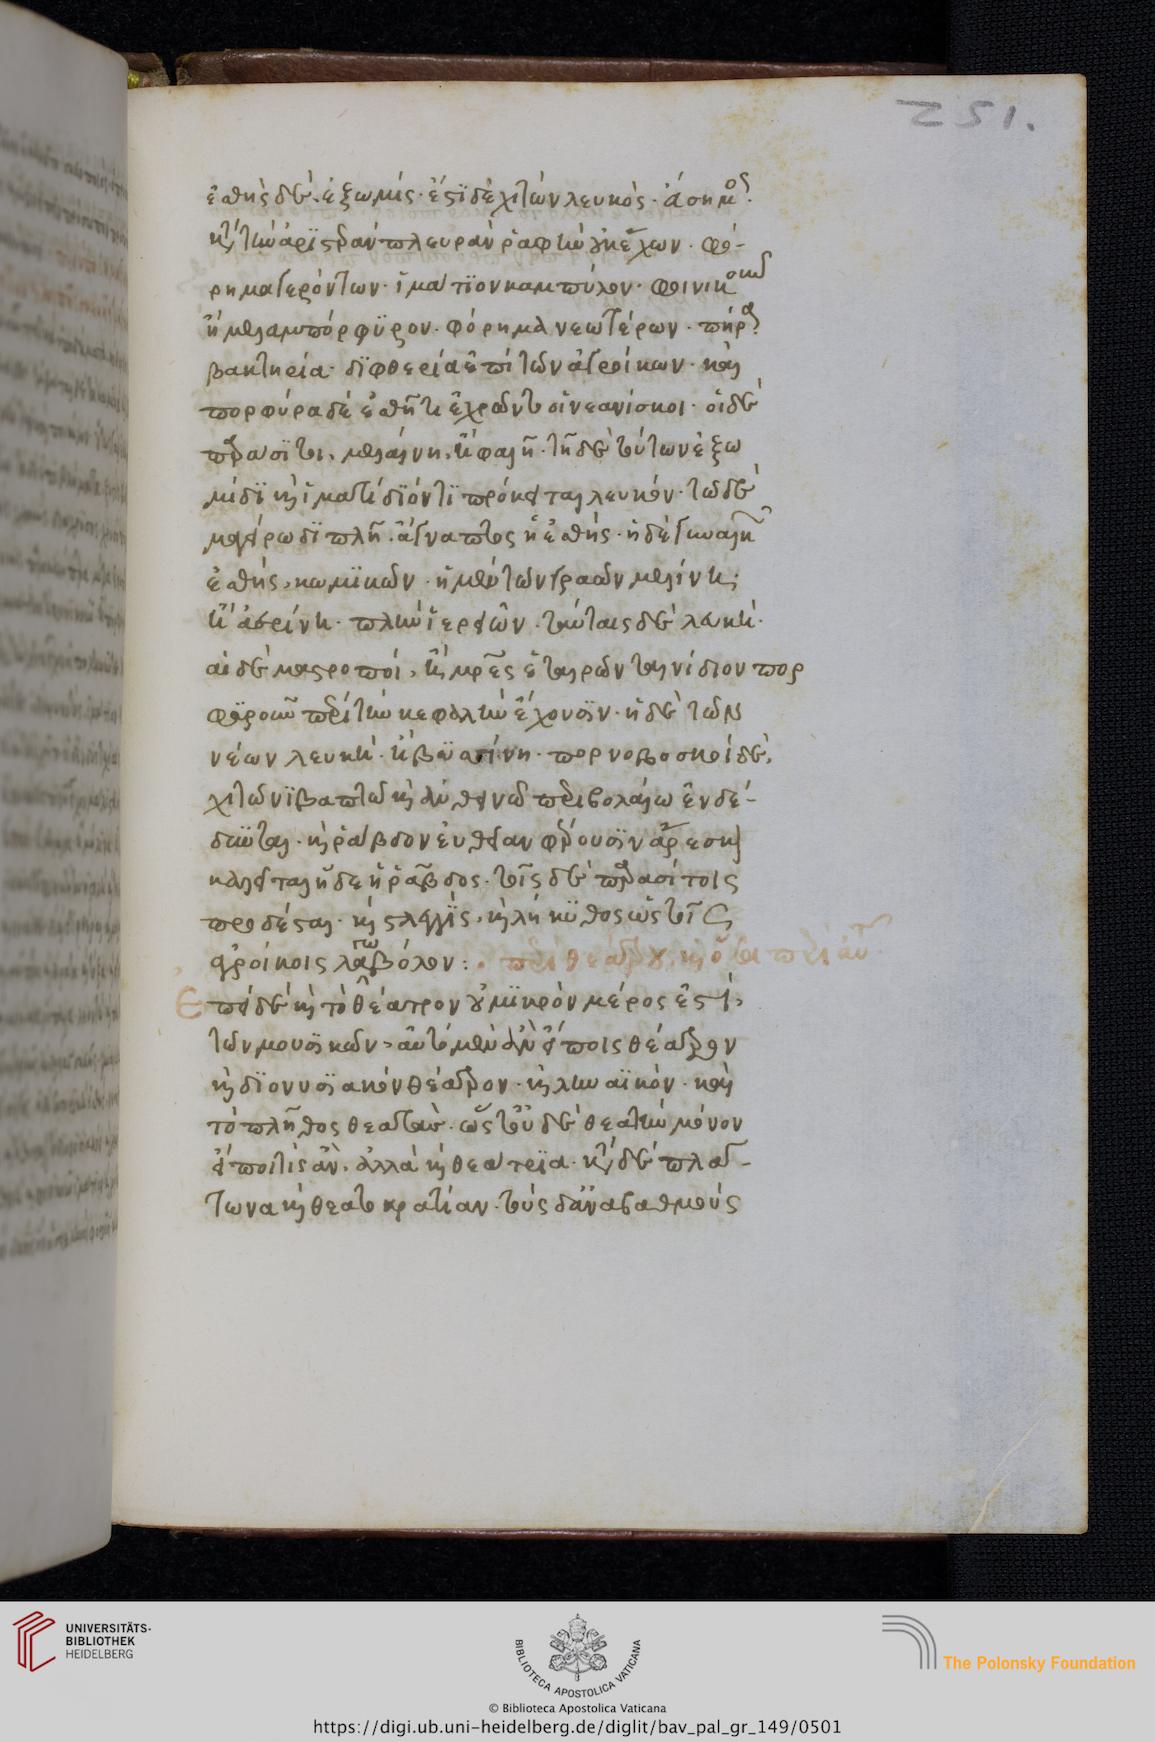 251.
ἐσθὴς δὲ ἐξωμίς· ἔστι δὲ χιτὼν λευκὸς· ἄσημος·
κατὰ τὴν ἀριστερὰν πλευρὰν ῥαφὴν οὐκ ἔχων· φό-
ρημα γερόντων· ἱμάτιον καμπύλον· φοινικοῦν
ἢ μελαμπόρφυρον· φόρημα νεωτέρων· πήρα
βακτηρία· διφθερία ἐπὶ τῶν ἀγροίκων· καὶ
πορφύρα δὲ ἐσθῆτι ἐχρῶντο οἱ νεανίσκοι· οἱ δὲ
παράσιτοι, μελαίνη, ἢ φαιῇ· τῇ δὲ τούτων ἐξω
μίδι καὶ ἱμάτιδιόν τι πρόκειται λευκόν· τῶ δὲ
μαγείρω διπλῆ· ἄγναπτος ἡ ἐσθής· ἡ δὲ γυναικ
ἐσθής, κωμικῶν· ἡ μὲν τῶν γραῶν μηλίνη,
ἢ ἀερίνη· πλὴν ἱερειῶν· ταύταις δὲ λευκή·
αἱ δὲ μαστροποί, ἢ μητέρες ἑταιρῶν ταινίδιον πορ
φυροῦν περὶ τὴν κεφαλὴν ἔχουσιν· ἡ δὲ τῶν
νέων λευκὴ· ἢ βυσσίνη· πορνοβοσκοὶ δὲ,
χιτῶνι βαπτῶ καὶ ἀνθεινῶ περιβολαίω ἐνδέ-
δυνται· καὶ ῥάβδον εὐθεῖαν φέρουσιν ἄρεσκος
καλεῖται ἥδε ἡ ῥάβδος· τοῖς δὲ παρασίτοις
πρόσεσται· καὶ στλεγγὶς, καὶ λήκυθος ὡς τοῖς
ἀγροίκοις λαγωβόλον:· περὶ θεάτρου, καὶ
Ἐπεὶ δὲ καὶ τὸ θέατρον οὐ μικρὸν μέρος ἐστί,
τῶν μουσικῶν, αὐτὸ μὲν ἂν εἴποις θέατρον
καὶ διονυσιακὸν θέατρον· καὶ ληναϊκόν· καὶ
τὸ πλῆθος θεατὰς· ὥστ' οὐδὲ θεατὴν μόνον
εἴποι τίς ἂν, ἀλλὰ καὶ θεάτρια· κατὰ δὲ πλά-
τωνα καὶ θεατοκρατίαν· τοὺς δ' ἀναβαθμοὺς
UNIVERSITÄTS-
BIBLIOTHEK
HEIDELBERG
BIBLIOTECA APOSTOLICA VATICANA
The Polonsky Foundation
© Biblioteca Apostolica Vaticana
https://digi.ub.uni-heidelberg.de/diglit/bav_pal_gr_149/0501